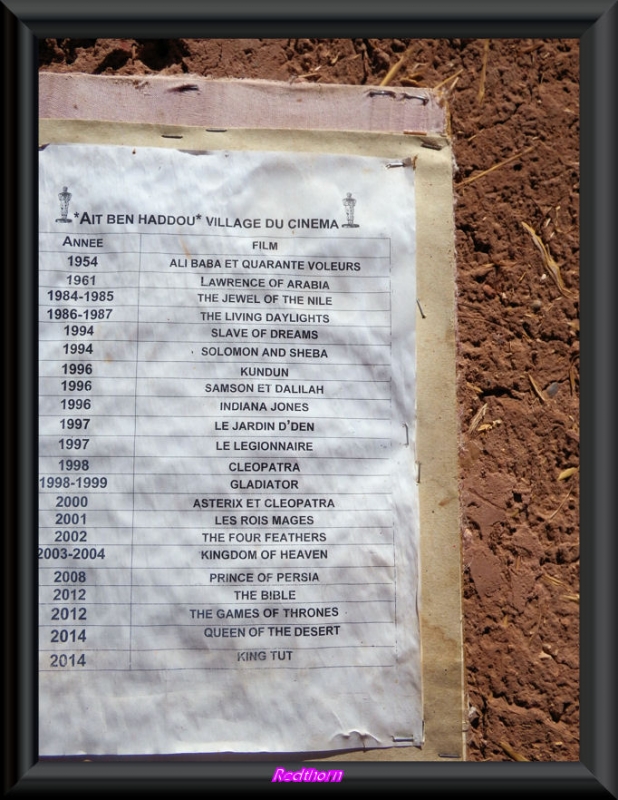 *AIT BEN HADDOU* VILLAGE DU CINEMA
ANNEE FILM
1954 ALI BABA ET QUARANTE VOLEURS
1961 LAWRENCE OF ARABIA
1984-1985 THE JEWEL OF THE NILE
1986-1987 THE LIVING DAYLIGHTS
1994 SLAVE OF DREAMS
1994 SOLOMON AND SHEBA
1996 KUNDUN
1996 SAMSON ET DALILAH
1996 INDIANA JONES
1997 LE JARDIN D'DEN
1997 LE LEGIONNAIRE
1998 CLEOPATRA
1998-1999 GLADIATOR
2000 ASTERIX ET CLEOPATRA
2001 LES ROIS MAGES
2002 THE FOUR FEATHERS
2003-2004 KINGDOM OF HEAVEN
2008 PRINCE OF PERSIA
2012 THE BIBLE
2012 THE GAMES OF THRONES
2014 QUEEN OF THE DESERT
2014 KING TUT
Redthorn